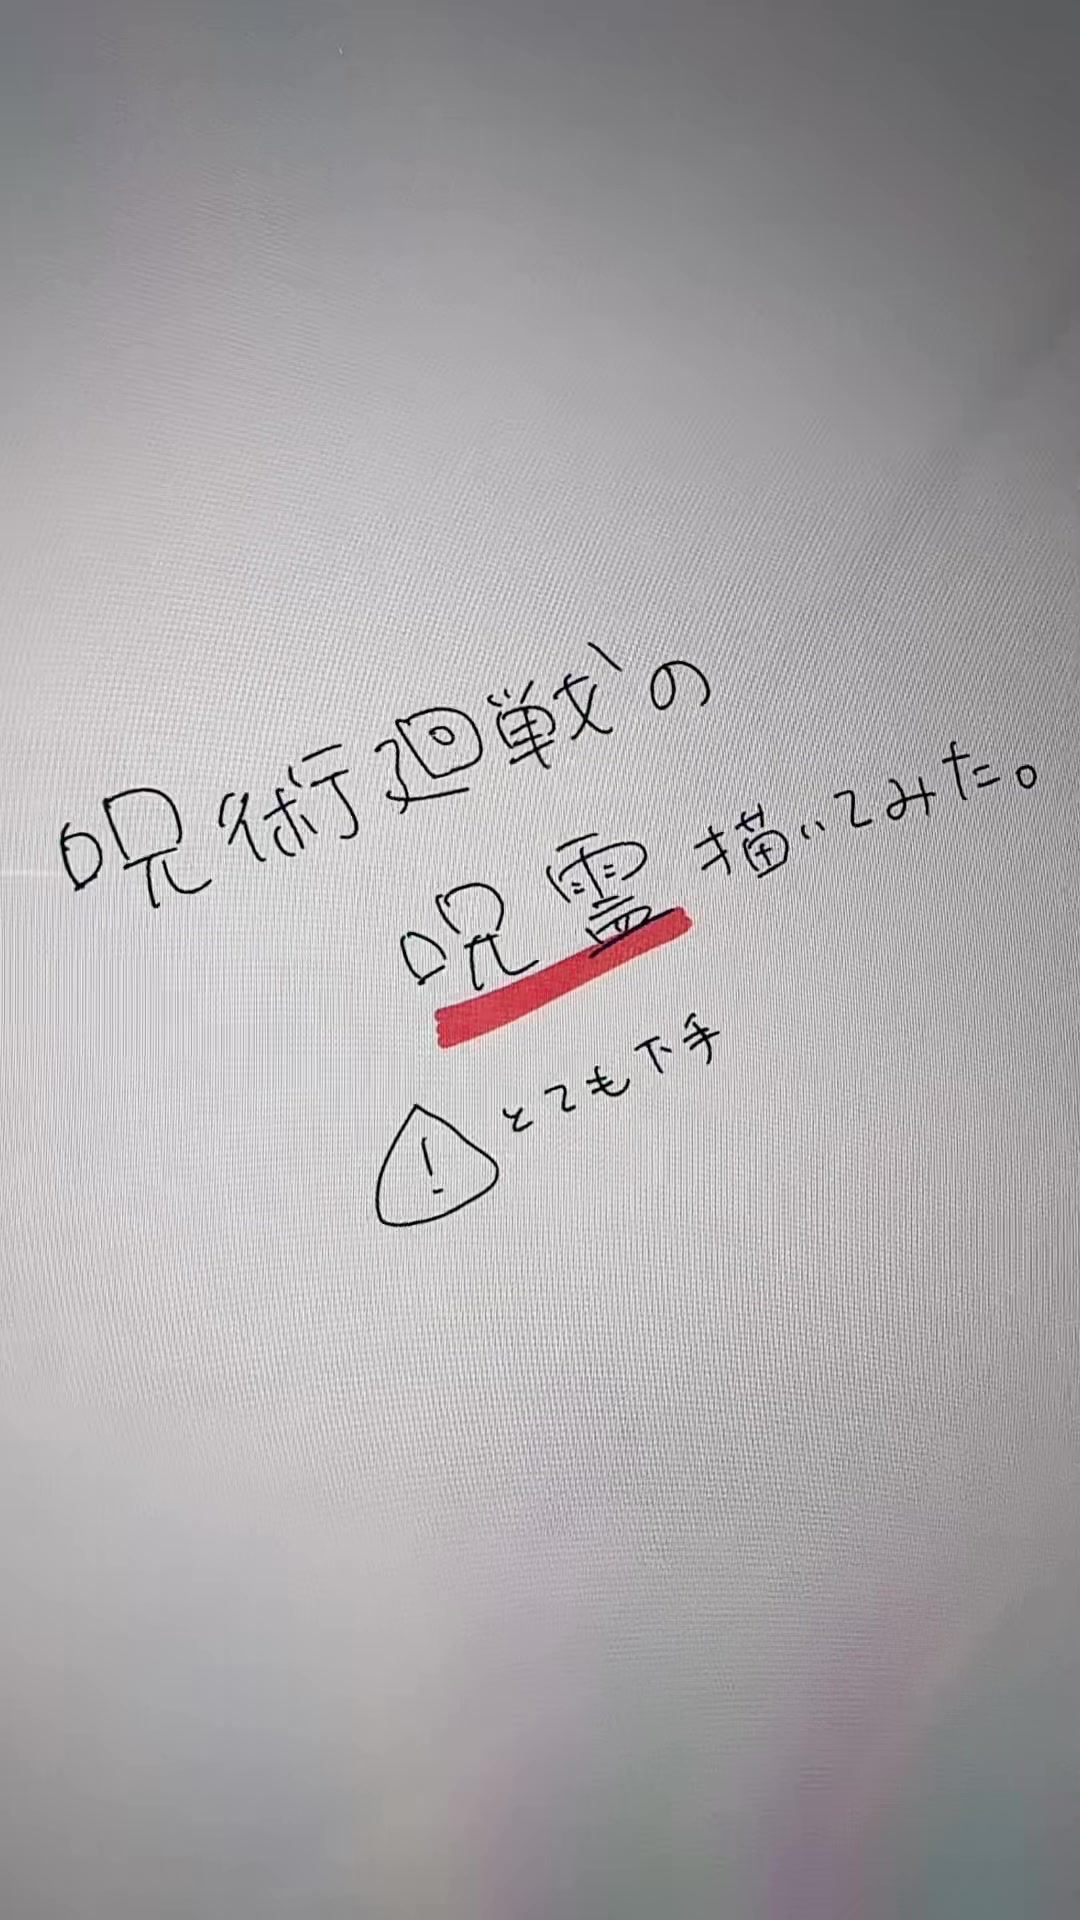 呪術廻戦の
呪霊描いてみた。
! とても下手